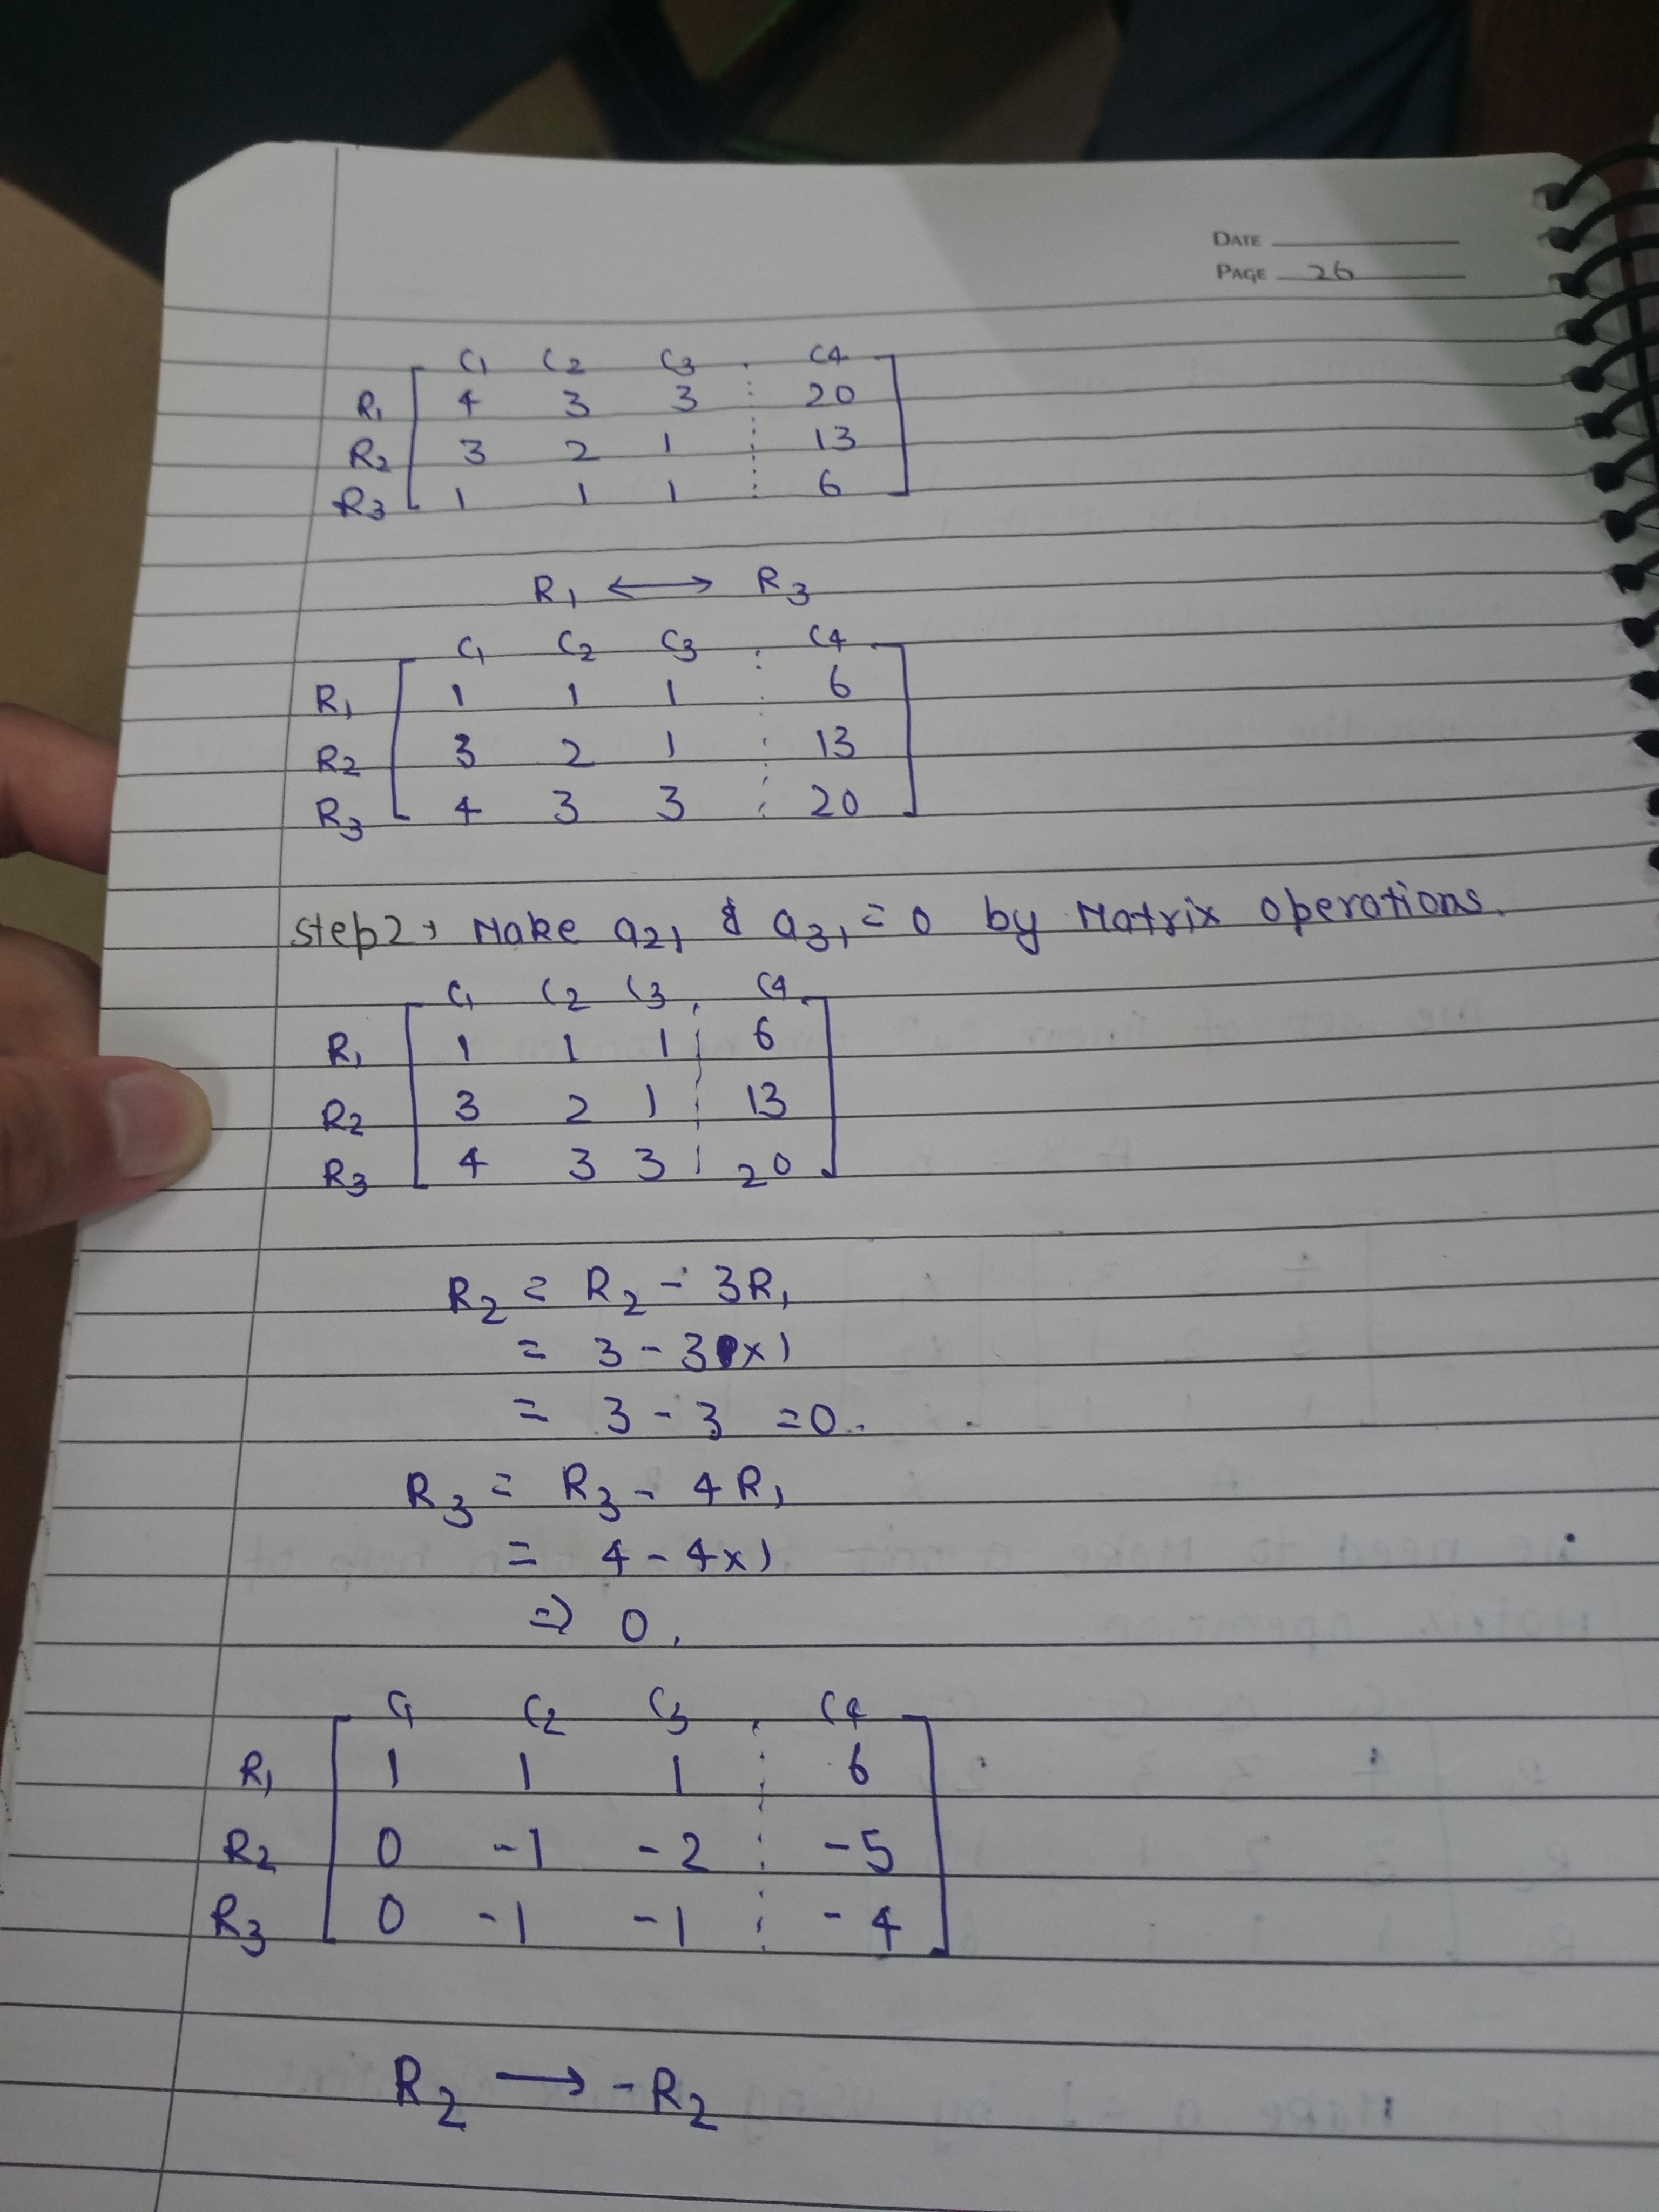 DATE
PAGE 26
C1 C2 C3 C4
R1 4 3 3 20
R2 3 2 1 13
R3 1 1 1 6
R1 ⟷ R3
C1 C2 C3 C4
R1 1 1 1 6
R2 3 2 1 13
R3 4 3 3 20
Step 2, Make a21 & a31 = 0 by Matrix operations.
C1 C2 C3 C4
R1 1 1 1 6
R2 3 2 1 13
R3 4 3 3 20
R2 = R2 - 3R1
= 3 - 3 x 1
= 3 - 3 = 0.
R3 = R3 - 4R1
= 4 - 4x1
⇒ 0.
C1 C2 C3 C4
R1 1 1 1 6
R2 0 -1 -2 -5
R3 0 -1 -1 -4
R2 ⟶ -R2